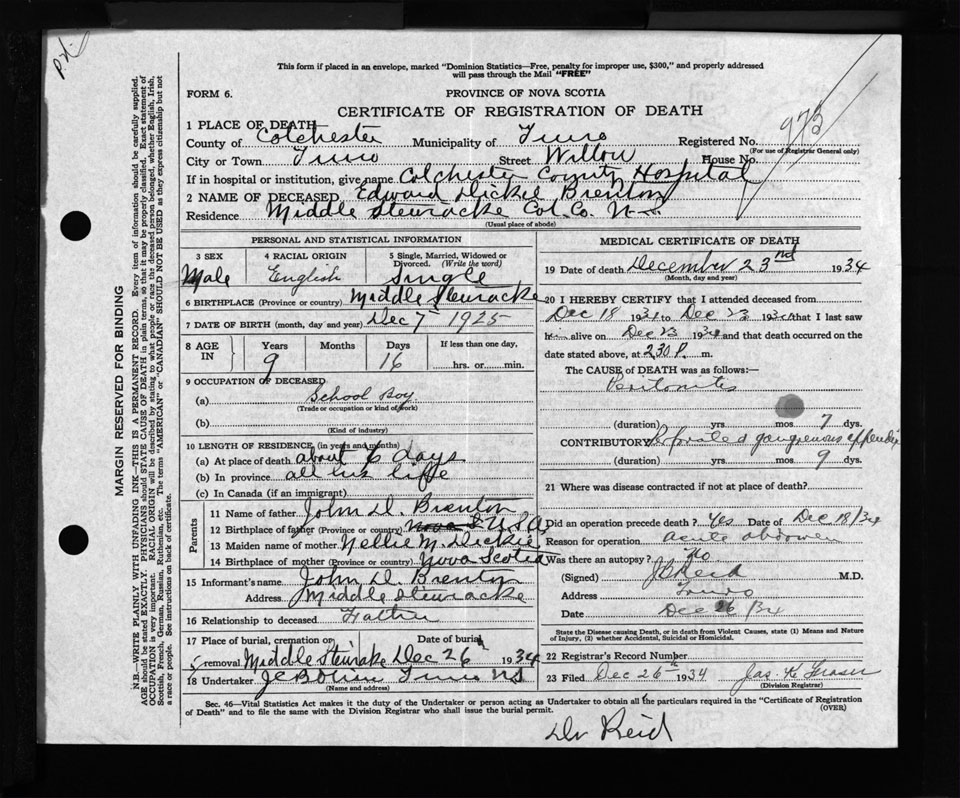 P.X.
This form if placed in an envelope, marked "Dominion Statistics—Free, penalty for improper use, $300," and properly addressed
will pass through the Mail "FREE"
FORM 6. PROVINCE OF NOVA SCOTIA
CERTIFICATE OF REGISTRATION OF DEATH
973
1 PLACE OF DEATH
County of Colchester Municipality of Truro Registered No.
(For use of Registrar General only)
City or Town Truro Street Willow House No.
If in hospital or institution, give name Colchester County Hospital
2 NAME OF DECEASED Edward Dickie Brenton
Residence Middle Stewiacke Col. Co. N.S.
(Usual place of abode)
PERSONAL AND STATISTICAL INFORMATION
3 SEX 4 RACIAL ORIGIN 5 Single, Married, Widowed or Divorced. (Write the word)
Male English Single
6 BIRTHPLACE (Province or country) Middle Stewiacke
7 DATE OF BIRTH (month, day and year) Dec 7 1925
8 AGE IN Years Months Days If less than one day,
9 16 hrs. or min.
9 OCCUPATION OF DECEASED
(a) School boy
(Trade or occupation or kind of work)
(b)
(Kind of industry)
10 LENGTH OF RESIDENCE (in years and months)
(a) At place of death about 6 days
(b) In province all his life
(c) In Canada (if an immigrant)
Parents
11 Name of father John D. Brenton
12 Birthplace of father (Province or country) Nova S U.S.A.
13 Maiden name of mother Nellie M. Dickie
14 Birthplace of mother (Province or country) Nova Scotia
15 Informant's name John D. Brenton
Address Middle Stewiacke
16 Relationship to deceased Father
17 Place of burial, cremation or Date of burial
removal Middle Stewiacke Dec 26th 1934
18 Undertaker Truro NS
(Name and address)
MEDICAL CERTIFICATE OF DEATH
19 Date of death December 23nd 1934
(Month, day and year)
20 I HEREBY CERTIFY that I attended deceased from
Dec 18 1934 to Dec 23 1934 that I last saw
h alive on Dec 23 1934 and that death occurred on the
date stated above, at 2 30 P. m.
The CAUSE of DEATH was as follows:—
Peritonitis
(duration) yrs. mos. 7 dys.
CONTRIBUTORY gangrenous appendix
(duration) yrs. mos. 9 dys.
21 Where was disease contracted if not at place of death?
Did an operation precede death? Yes Date of Dec 18/34
Reason for operation acute abdomen
Was there an autopsy? No
(Signed) Reid M.D.
Address Truro
Date Dec 26/34
State the Disease causing Death, or in death from Violent Causes, state (1) Means and Nature
of Injury, (2) whether Accidental, Suicidal or Homicidal.
22 Registrar's Record Number
23 Filed Dec 26th 1934 Jas K Fraser
(Division Registrar)
Sec. 46—Vital Statistics Act makes it the duty of the Undertaker or person acting as Undertaker to obtain all the particulars required in the "Certificate of Registration
of Death" and to file the same with the Division Registrar who shall issue the burial permit. (OVER)
Dr Reid
MARGIN RESERVED FOR BINDING
N.B.—WRITE PLAINLY WITH UNFADING INK—THIS IS A PERMANENT RECORD. Every item of information should be carefully supplied.
AGE should be stated EXACTLY. PHYSICIANS should STATE CAUSE OF DEATH in plain terms, so that it may be properly classified. Exact statement of
OCCUPATION is very important. RACIAL ORIGIN will be described by stating to what people or race the deceased person belonged, whether English, Irish,
Scottish, French, German, Russian, Ruthenian, etc. The terms "AMERICAN" or "CANADIAN" SHOULD NOT BE USED as they express citizenship but not
a race or people. See instructions on back of certificate.